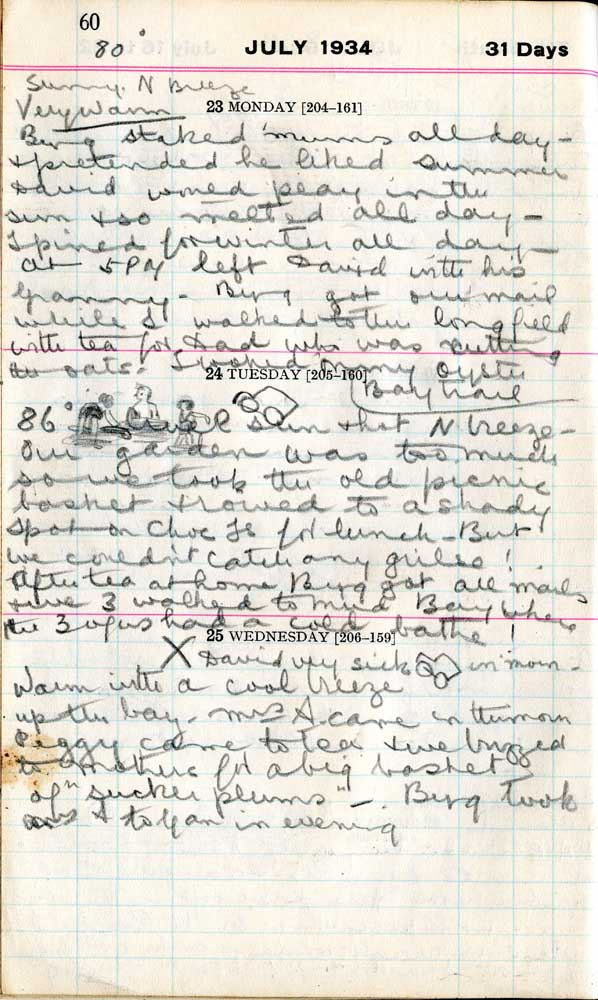 60
80°
JULY 1934
31 Days
Sunny. N Breeze
Very warm
23 MONDAY [204–161]
Berg staked 'mums all day –
& pretended he liked summer
David would play in the
sun & so melted all day –
I pined for winter all day –
at 5 PM left David with his
Granny – Berg got our mail
while I walked to the longfield
with tea for Dad who was cutting
oats. I worked on my oyster
24 TUESDAY [205–160]
Bay trail
86° Sun & hot N breeze –
Our garden was too much
so we took the old picnic
basket & rowed to a shady
spot on Choc Is for lunch – But
we couldn't catch any grilse!
After tea at home Berg got all mails
& we 3 walked to Mud Bay where
the 3 of us had a cold bathe!
25 WEDNESDAY [206–159]
X David very sick in morn –
Warm with a cool breeze
up the bay – Mrs A came in the morn
Peggy came to tea & we buzzed
to Mothers for a big basket
of "sucker plums" – Berg took
Mrs A to Gan in evening